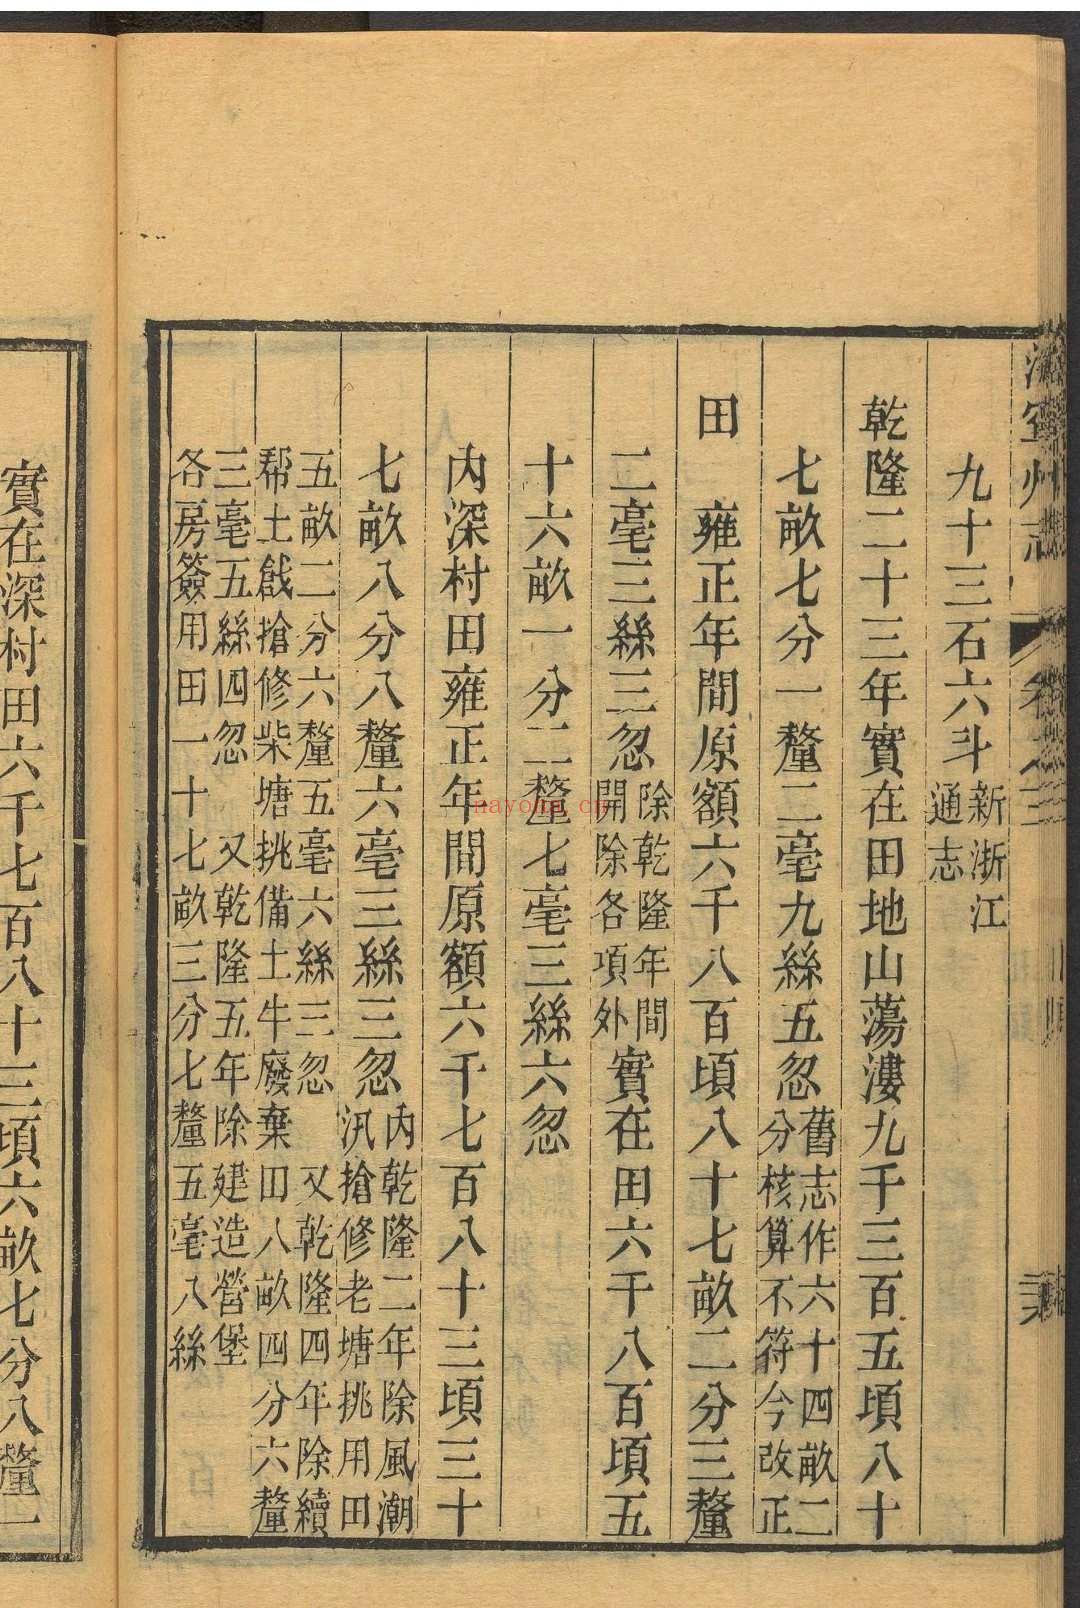 海寧州志
卷之三
九十三石六斗
新浙江
通志
乾隆二十三年實在田地山蕩漊九千三百五頃八十
七畝七分一釐二毫九絲五忽
舊志作六十四畝二
分核算不符今改正
田　雍正年間原額六千八百頃八十七畝二分三釐
二毫三絲三忽
除乾隆年間
開除各項外
實在田六千八百頃五
十六畝一分二釐七毫三絲六忽
內深村田雍正年間原額六千七百八十三頃三十
七畝八分八釐六毫三絲三忽
內乾隆二年除風潮
汛搶修老塘挑用田
五畝二分六釐五毫六絲三忽　又乾隆四年除續
幇土戧搶修柴塘挑備土牛廢棄田八畝四分六釐
三毫五絲四忽　又乾隆五年除建造營堡
各房簽用田一十七畝三分七釐五毫八絲
實在深村田六千七百八十三頃六畝七分八釐一
nayona.cn